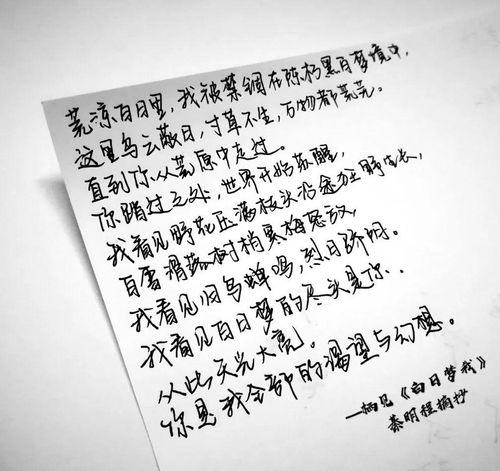 荒凉百日里，我被禁锢在陈朽黑白梦境中，
这里乌云蔽日，寸草不生，万物都荒芜。
直到你从荒原中走过。
你踏过之处，世界开始苏醒，
我看见野花压满枝头沿途狂野生长，
白雪滑落树梢寒梅怒放，
我看见旧鸟蝉鸣，烈日骄阳。
我看见白日梦的尽头是你..
从此天光大亮。
你是我全部的渴望与幻想。
—栖见《白日梦我》
秦明程摘抄